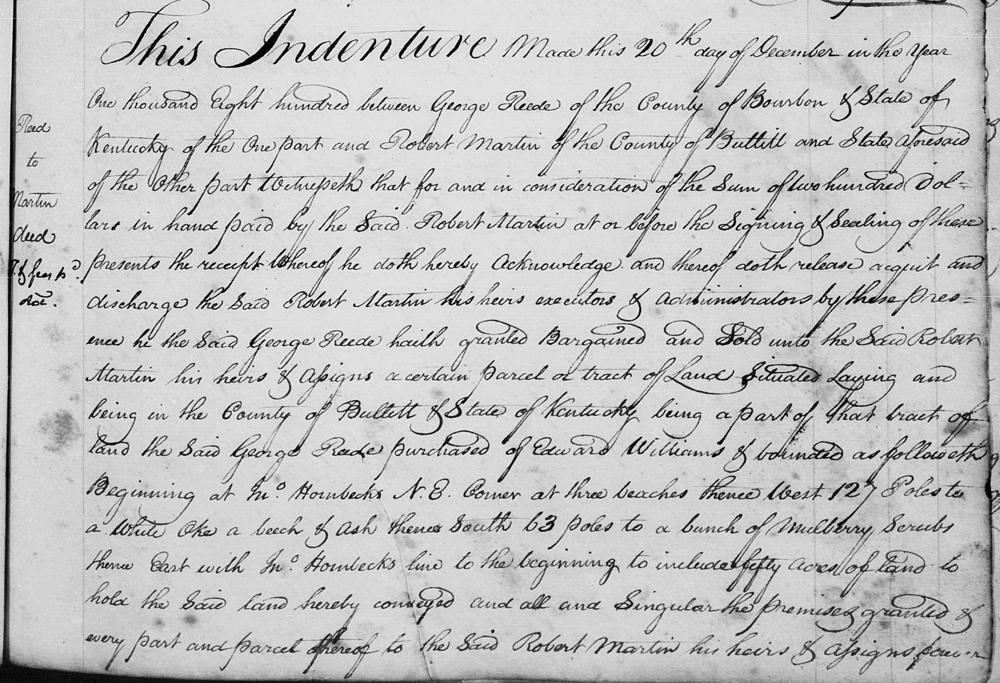 This Indenture Made this 20th day of December in the Year
One thousand Eight hundred between George Reede of the County of Bourbon & State of
Kentucky of the One part and Robert Martin of the County of Buttitt and State Aforesaid
of the Other part Witnesseth that for and in consideration of the Sum of two hundred Dol=
lars in hand paid by the Said Robert Martin at or before the Signing & Sealing of these
presents the receipt Whereof he doth hereby Acknowledge and thereof doth release acquit and
discharge the Said Robert Martin his heirs executors & Administrators by these pres=
ence he the Said George Reede haith granted Bargained and Sold unto the Said Robert
Martin his heirs & Assigns a certain parcel or tract of Land Situated Laying and
being in the County of Bullett & State of Kentucky being a part of that tract of
land the Said George Reede purchased of Edward Williams & bounded as followeth
Beginning at Mo. Hornbecks N.E. Corner at three beaches thence West 127 Poles to
a White Oke a beech & Ash thence South 63 poles to a bunch of Mulberry Scrubs
thence East with Mo. Hornbecks line to the beginning to include fifty acres of land to
hold the Said land hereby conveyed and all and Singular the premises granted &
every part and parcel thereof to the Said Robert Martin his heirs & Assigns
Reed
to
Martin
deed
& fees pd.